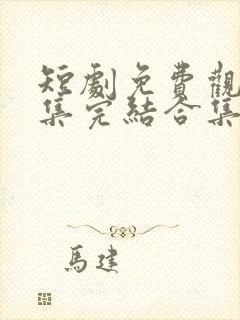 短劇免費觀
集完結合集
馬建